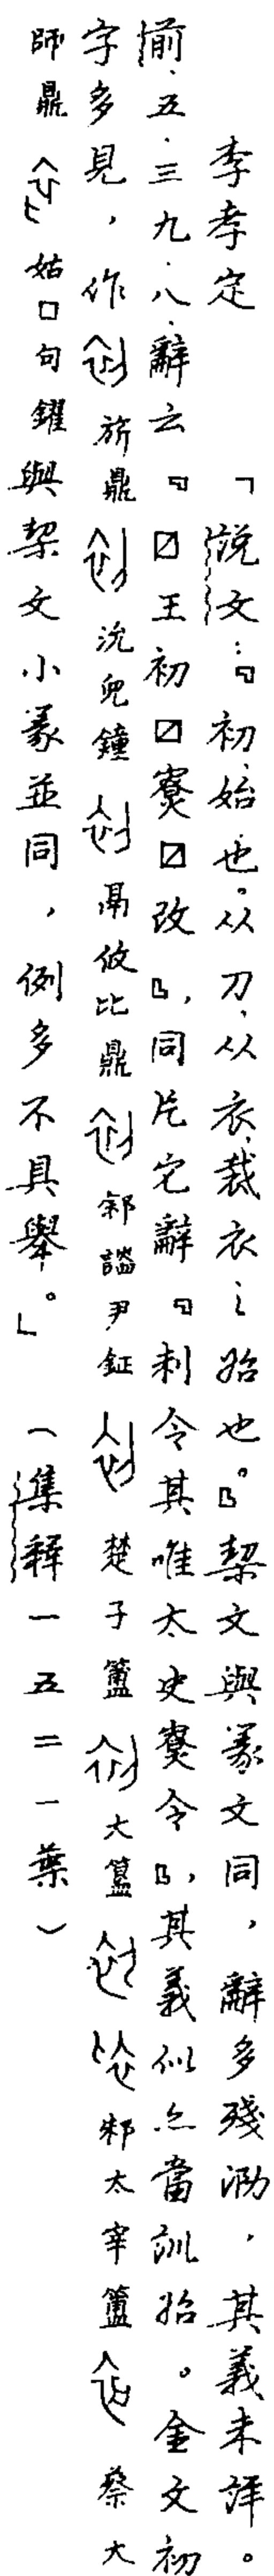 李孝定　「說文：『初，始也。从刀，从衣，裁衣之始也。』栔文與篆文同，辭多殘泐，其義未詳。
前．五．三九．八．辭云『☑王初☑寮☑改』，同片它辭『刺令其唯太史寮令』，其義似亦當訓始。金文初
字多見，作　旂鼎　沇兒鐘　鬲攸比鼎　䣄䛑尹鉦　楚子簠　大簋　邾太宰簠　蔡大
師鼎　姑□句鑃與栔文小篆並同，例多不具舉。」（集釋一五二一葉）